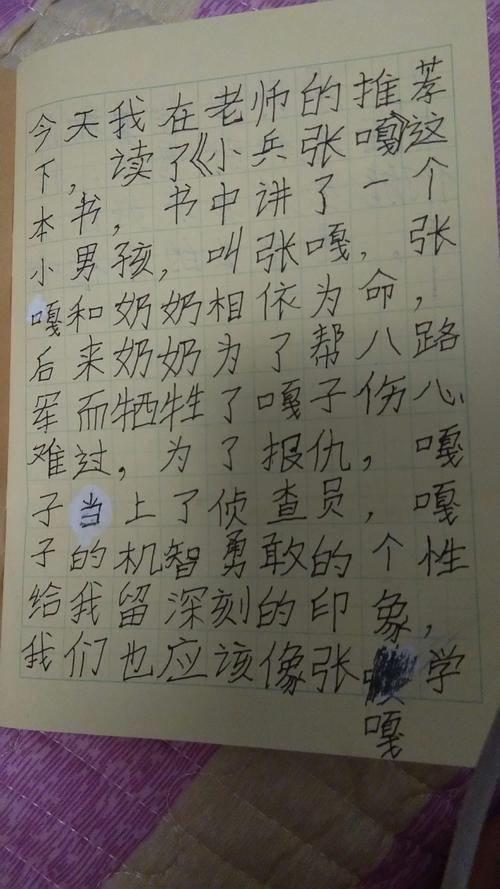 今天我在老师的推荐
下，读了《小兵张嘎》这
本书，书中讲了一个
小男孩，叫张嘎，张
嘎和奶奶相依为命，
后来奶奶为了帮八路
军而牺牲了嘎子伤心
难过，为了报仇，嘎
子当上了侦查员，嘎
子的机智勇敢的个性
给我留深刻的印象，
我们也应该像张嘎学